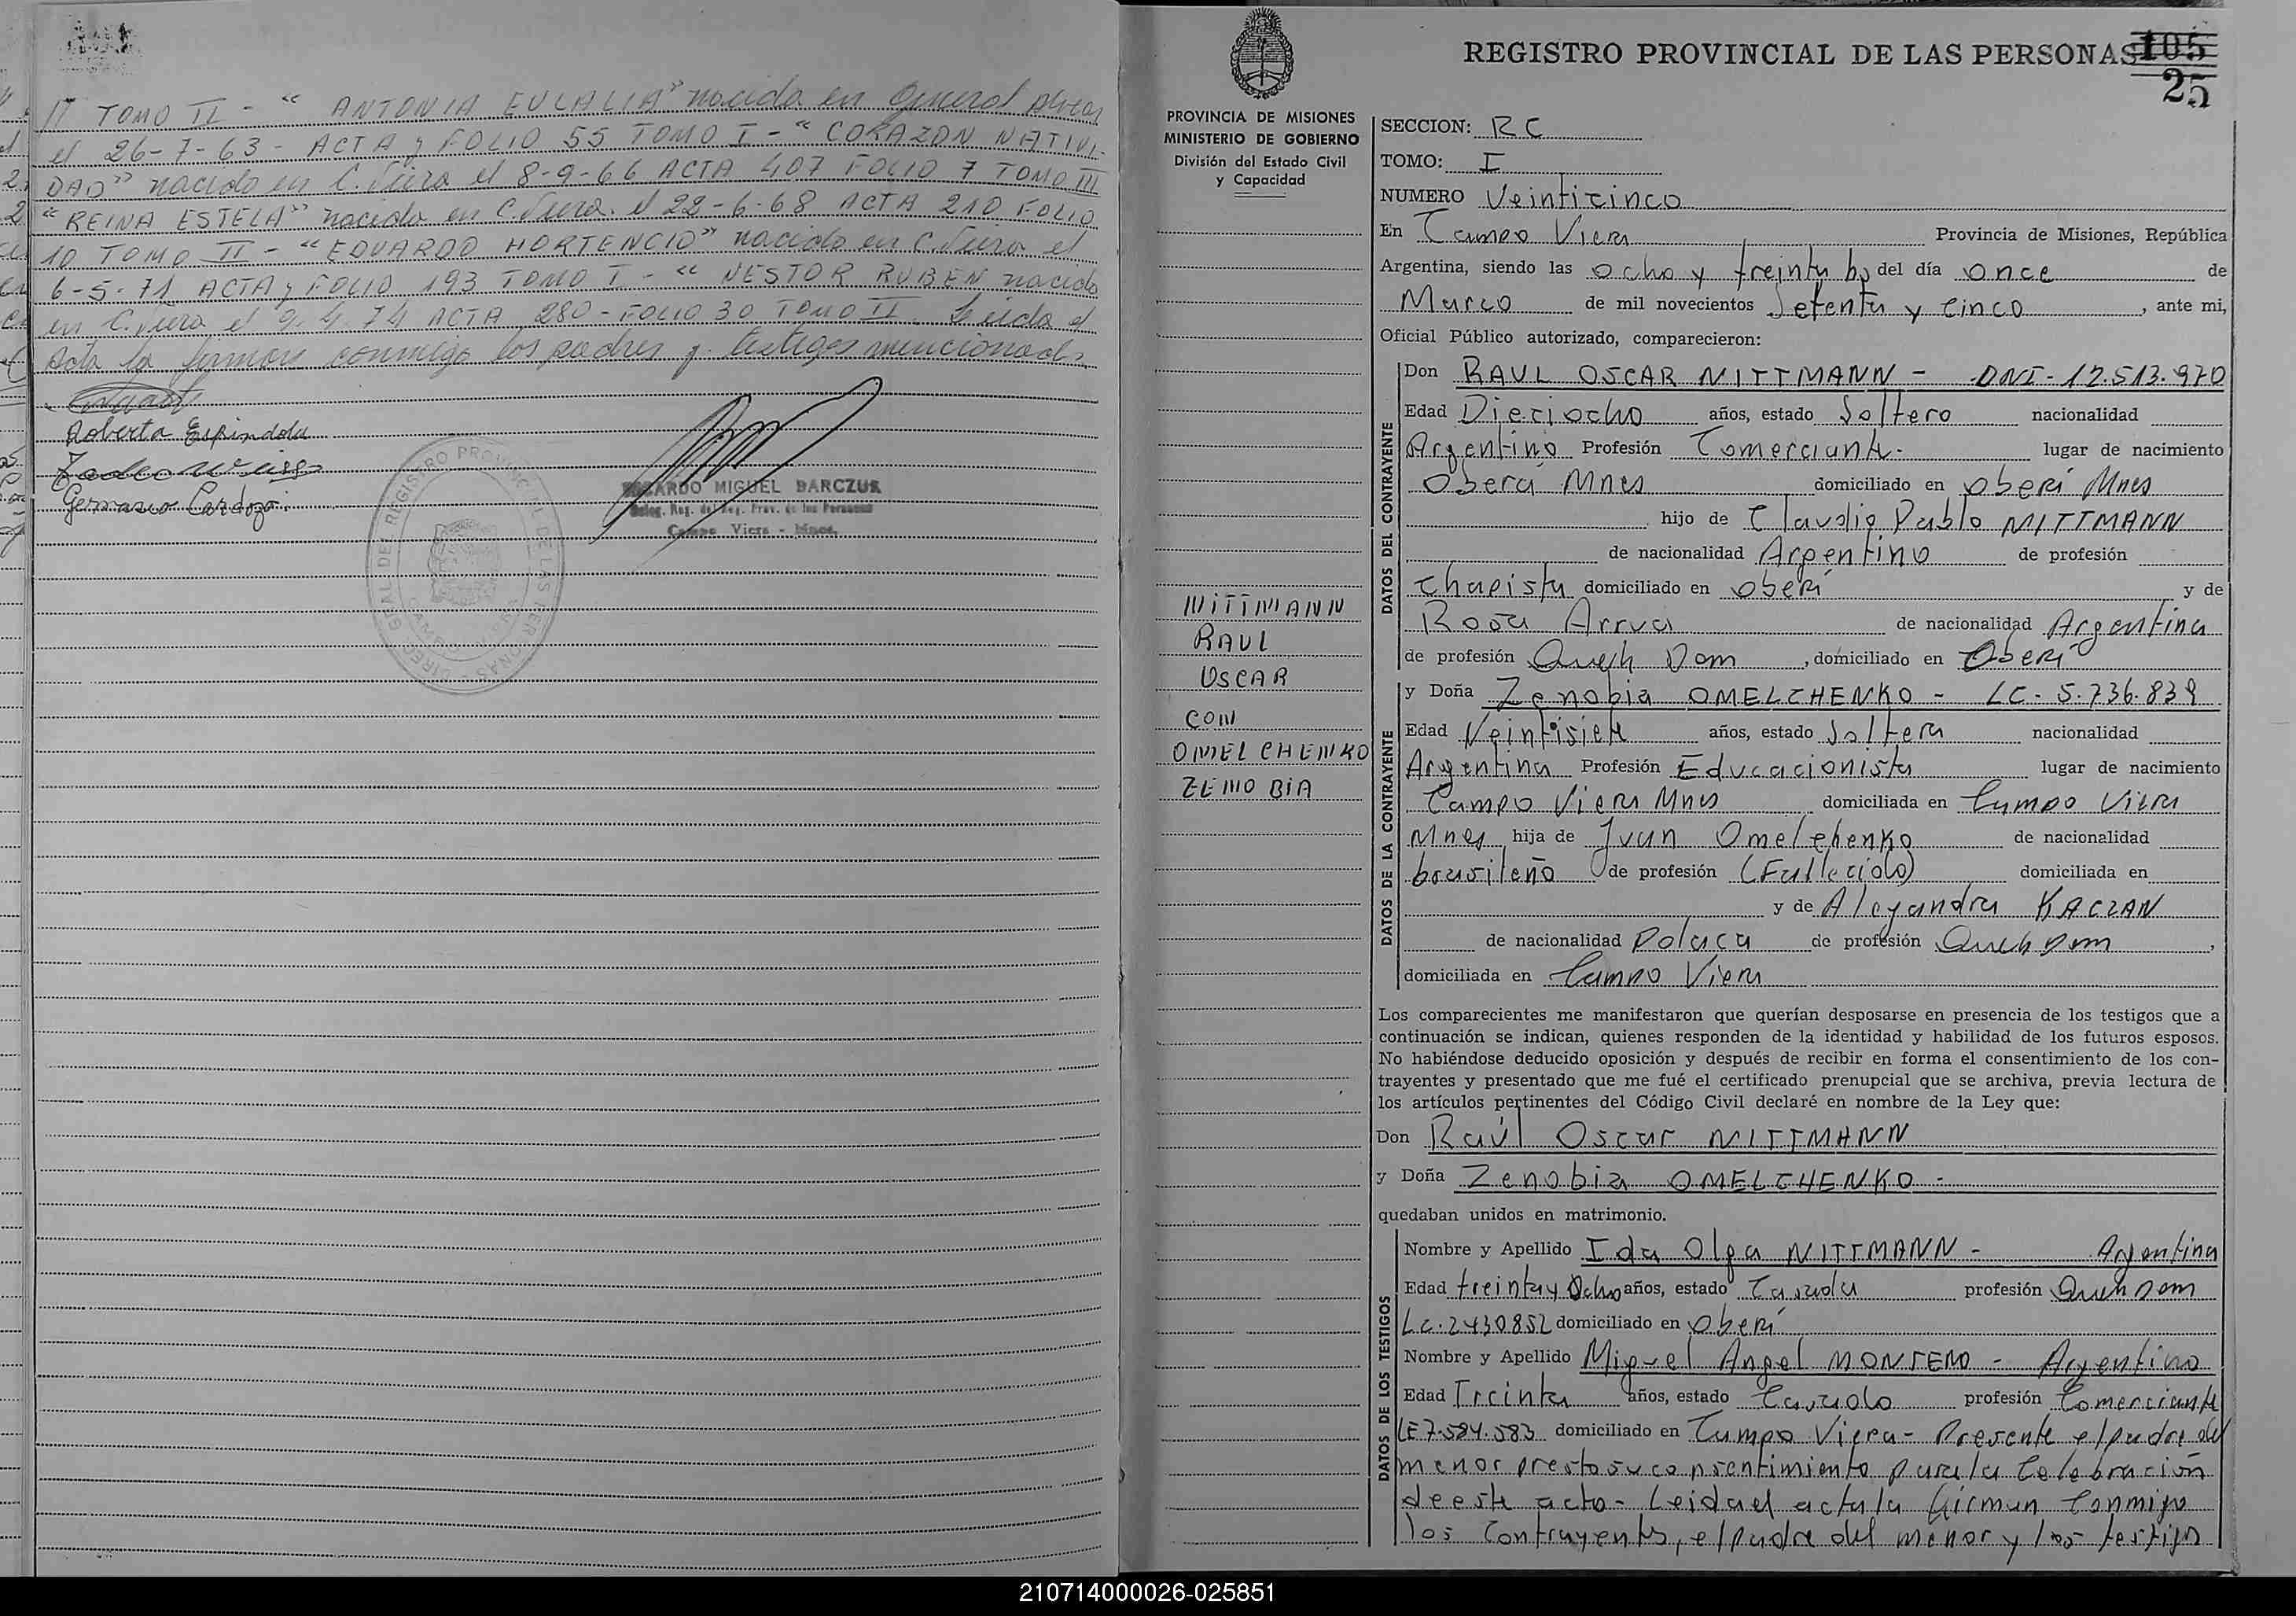 17 TOMO II - " ANTONIA EULALIA" nacida en General Alvear
el 26-7-63 - ACTA y FOLIO 55 TOMO I - " CORAZON NATIVI-
DAD" nacido en C. Viera el 8-9-66 ACTA 407 FOLIO 7 TOMO III
"REINA ESTELA" nacida en C. Viera el 22-6-68 ACTA 210 FOLIO
10 TOMO II - "EDUARDO HORTENCIO" nacido en C. Viera el
6-5-71 ACTA y FOLIO 193 TOMO I - " NESTOR RUBEN nacido
en C. Viera el 9-4-74 ACTA 280 - FOLIO 30 TOMO II. Leida el
Acta la firman conmigo los padres y testigos mencionados
Roberta Espindola
Germano Cardozo
RICARDO MIGUEL BARCZUK
Deleg. Reg. del Reg. Prov. de las Personas
Campo Viera - Mnes.
REGISTRO PROVINCIAL DE LAS PERSONAS
105
25
PROVINCIA DE MISIONES
MINISTERIO DE GOBIERNO
División del Estado Civil
y Capacidad
NITTMANN
RAUL
OSCAR
CON
OMELCHENKO
ZENOBIA
SECCION: RC
TOMO: I
NUMERO Veinticinco
En Campo Viera Provincia de Misiones, República
Argentina, siendo las ocho y treinta hs del día once de
Marzo de mil novecientos Setenta y Cinco, ante mi,
Oficial Público autorizado, comparecieron:
DATOS DEL CONTRAYENTE
Don RAUL OSCAR NITTMANN - DNI - 12.513.970
Edad Dieciocho años, estado Soltero nacionalidad
Argentino Profesión Comerciante. lugar de nacimiento
Oberá Mnes domiciliado en Oberá Mnes
hijo de Claudio Pablo NITTMANN
de nacionalidad Argentino de profesión
Chapista domiciliado en Oberá y de
Rosa Arrua de nacionalidad Argentina
de profesión Queh Dom, domiciliado en Oberá
DATOS DE LA CONTRAYENTE
y Doña Zenobia OMELCHENKO - LC - 5.736.839
Edad Veintisiete años, estado Soltera nacionalidad
Argentina Profesión Educacionista lugar de nacimiento
Campo Viera Mnes domiciliada en Campo Viera
Mnes hija de Juan Omelchenko de nacionalidad
brasileño de profesión (Fallecido) domiciliada en
y de Alejandra KACZAN
de nacionalidad Polaca de profesión Queh Dom,
domiciliada en Campo Viera
Los comparecientes me manifestaron que querían desposarse en presencia de los testigos que a
continuación se indican, quienes responden de la identidad y habilidad de los futuros esposos.
No habiéndose deducido oposición y después de recibir en forma el consentimiento de los con-
trayentes y presentado que me fué el certificado prenupcial que se archiva, previa lectura de
los artículos pertinentes del Código Civil declaré en nombre de la Ley que:
Don Raúl Oscar NITTMANN
y Doña Zenobia OMELCHENKO -
quedaban unidos en matrimonio.
DATOS DE LOS TESTIGOS
Nombre y Apellido Ida Olga NITTMANN - Argentina
Edad treinta y Ocho años, estado Casada profesión Queh Dom
LC. 2430852 domiciliado en Oberá
Nombre y Apellido Miguel Angel MONTERO - Argentino
Edad Treinta años, estado Casado profesión Comerciante
LE 7.584.583 domiciliado en Campo Viera - Presente el padre del
menor presto su consentimiento para la Celebración
de este acto - Leida el acta la firman Conmigo
los Contrayentes, el padre del menor y los testigos
210714000026-025851